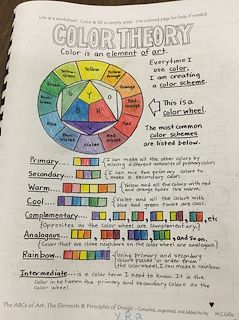 Use as a worksheet. Color & fill in empty areas. Use colored page for help if needed.
COLOR THEORY
Color is an element of art.
Everytime I
use color,
I am creating
a color scheme.
Yellow
Yellow-Green
Yellow-Orange
Green
Orange
Blue-Green
Red-Orange
Blue
Red
Blue-Violet
Red-Violet
Violet
G
Y
O
B
R
V
This is a
color wheel.
The most
common color
schemes
are listed below.
Primary....
I can make all the other colors by
mixing different amounts of primary colors
Secondary....
I can mix two primary colors to
make a secondary color.
Warm ....
Yellow and all the colors with red
and orange tones are warm.
Cool ....
Violet and all the colors with
blue and green tones are cool.
Complementary...., etc
(Opposites on the color wheel are Complementary.)
Analogous...., and so on.
(Colors that are close neighbors on the color wheel are analogous.)
Rainbow....
Using primary and secondary
colors placed in order around
the color wheel, I can make a rainbow.
Intermediate.... is a color term I need to know. It is the
color in between the primary and secondary colors on the
color wheel.
The ABCs of Art: The Elements & Principles of Design - Compiled, organized, and added to by M.C.Gillis